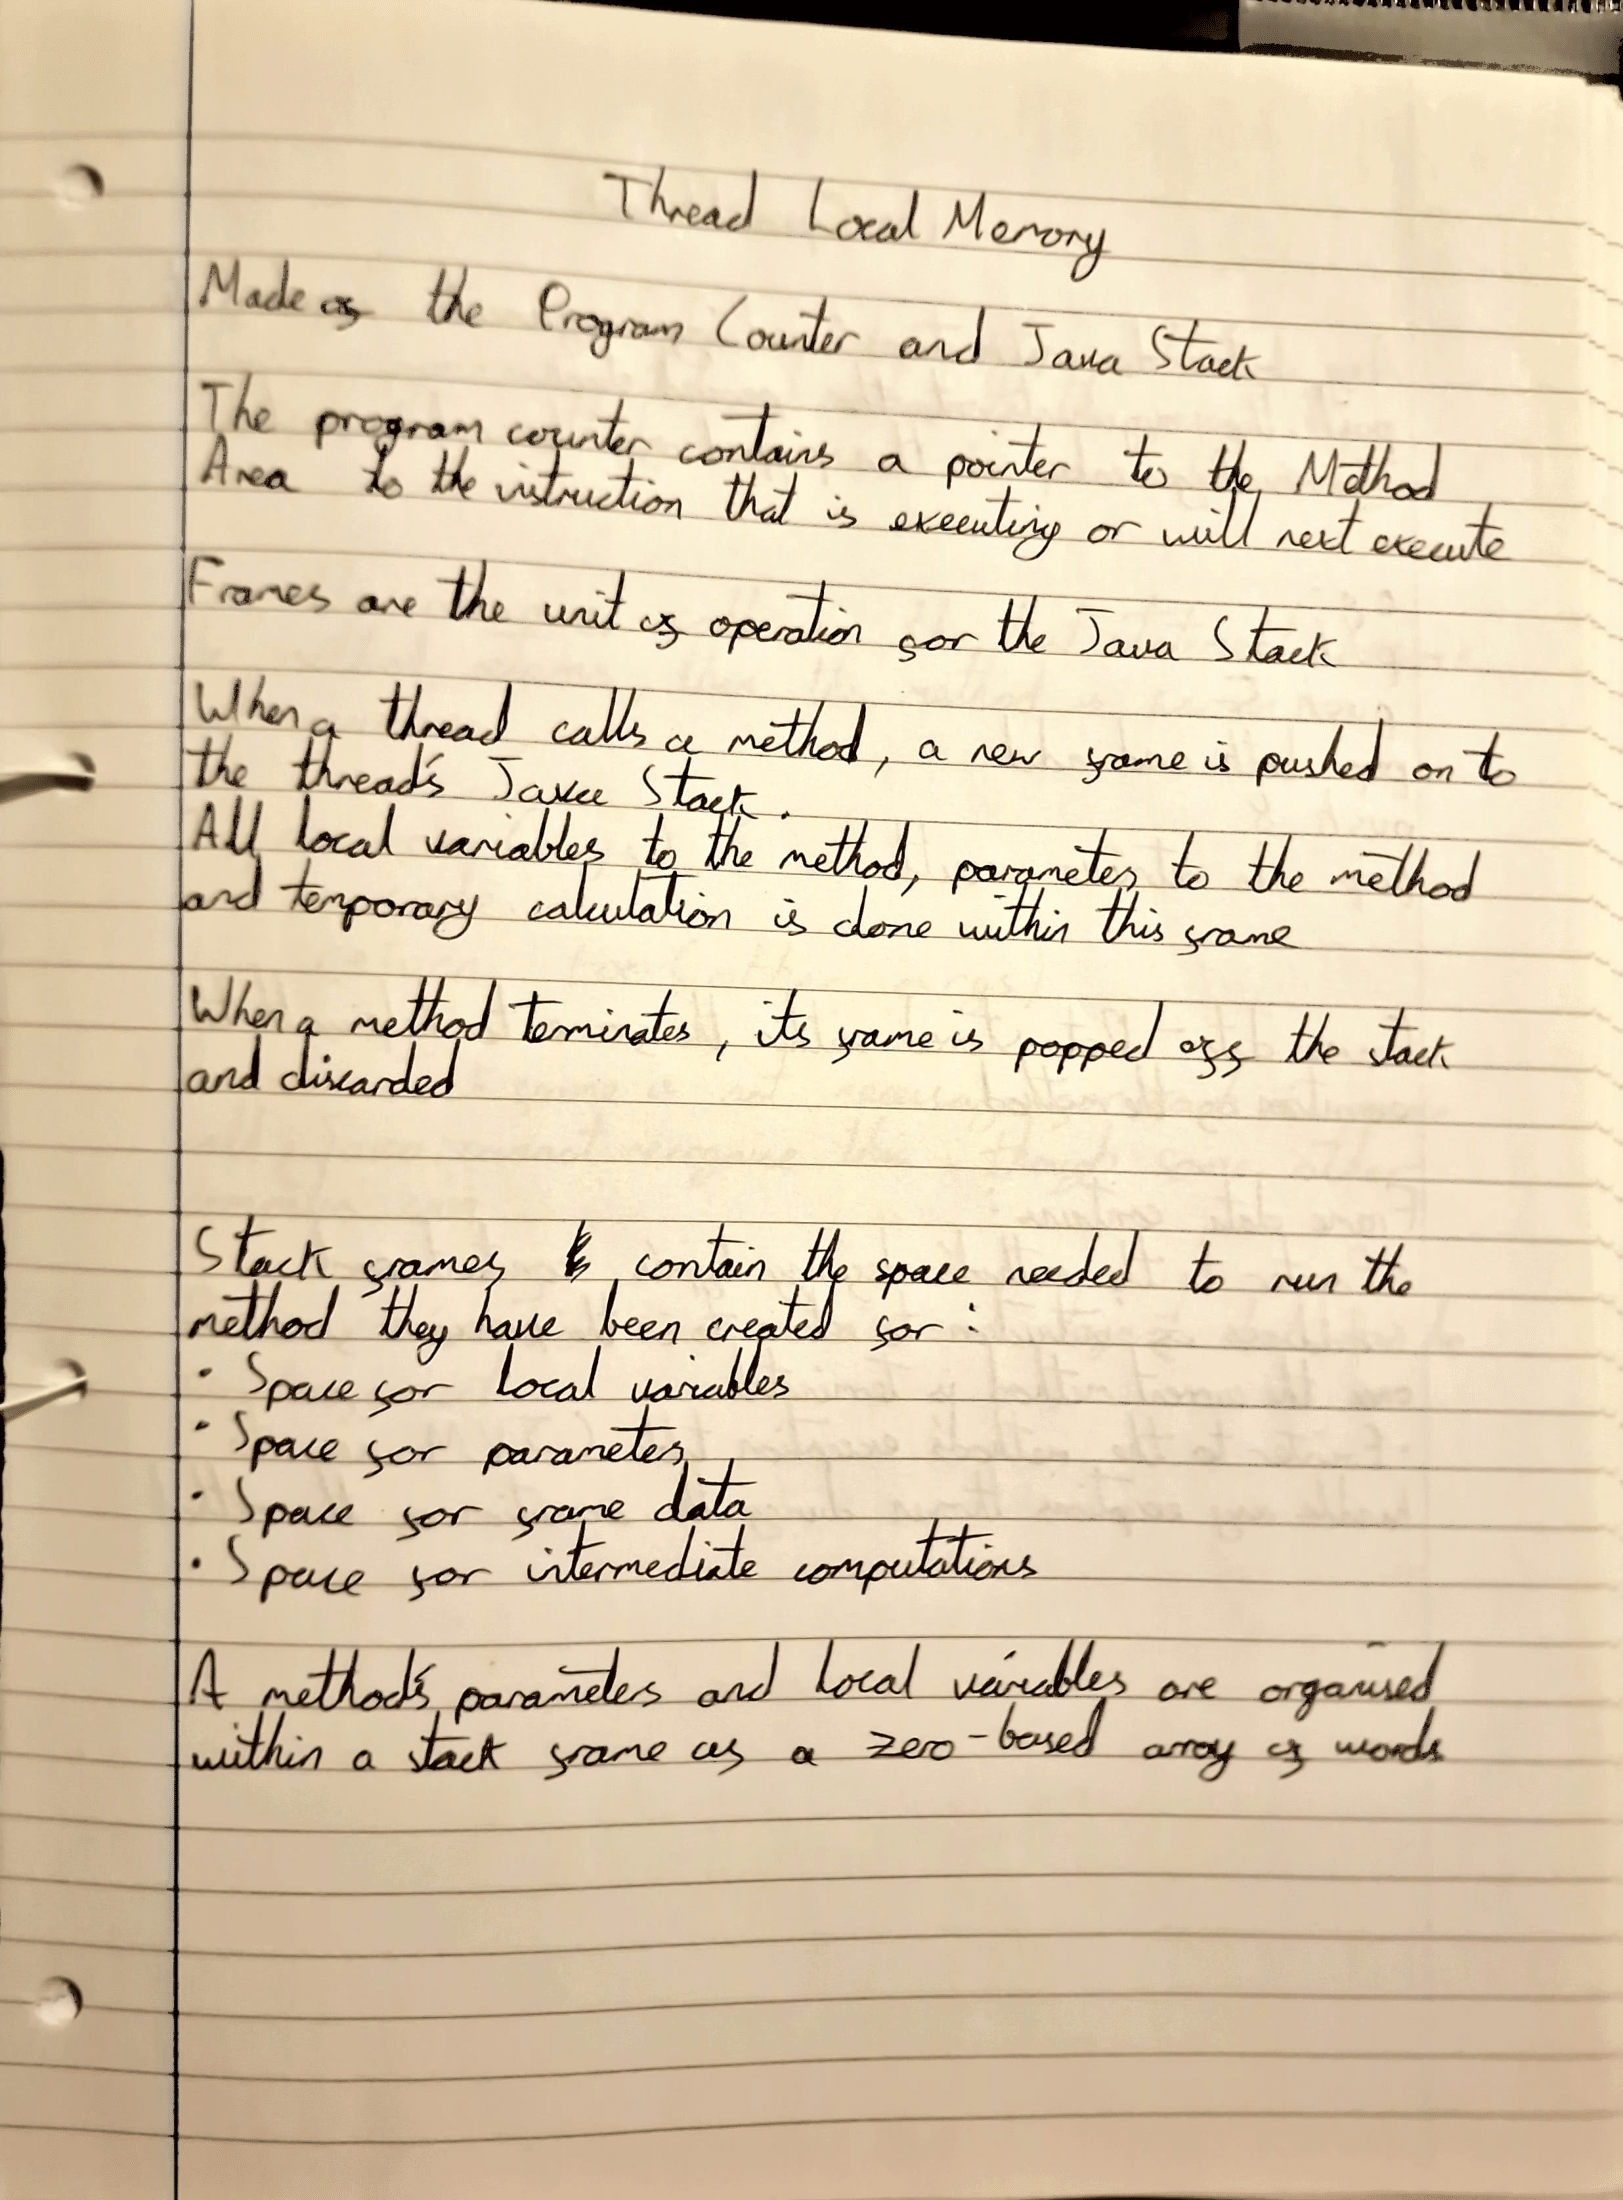 Thread Local Memory
Made of the Program Counter and Java Stack
The program counter contains a pointer to the Method
Area to the instruction that is executing or will next execute
Frames are the unit of operation for the Java Stack
When a thread calls a method, a new frame is pushed on to
the thread's Java Stack.
All local variables to the method, parameters to the method
and temporary calculation is done within this frame
When a method terminates, its frame is popped off the stack
and discarded
Stack frames contain the space needed to run the
method they have been created for:
• Space for local variables
• Space for parameters
• Space for frame data
• Space for intermediate computations
A method's parameters and local variables are organised
within a stack frame as a zero-based array of words